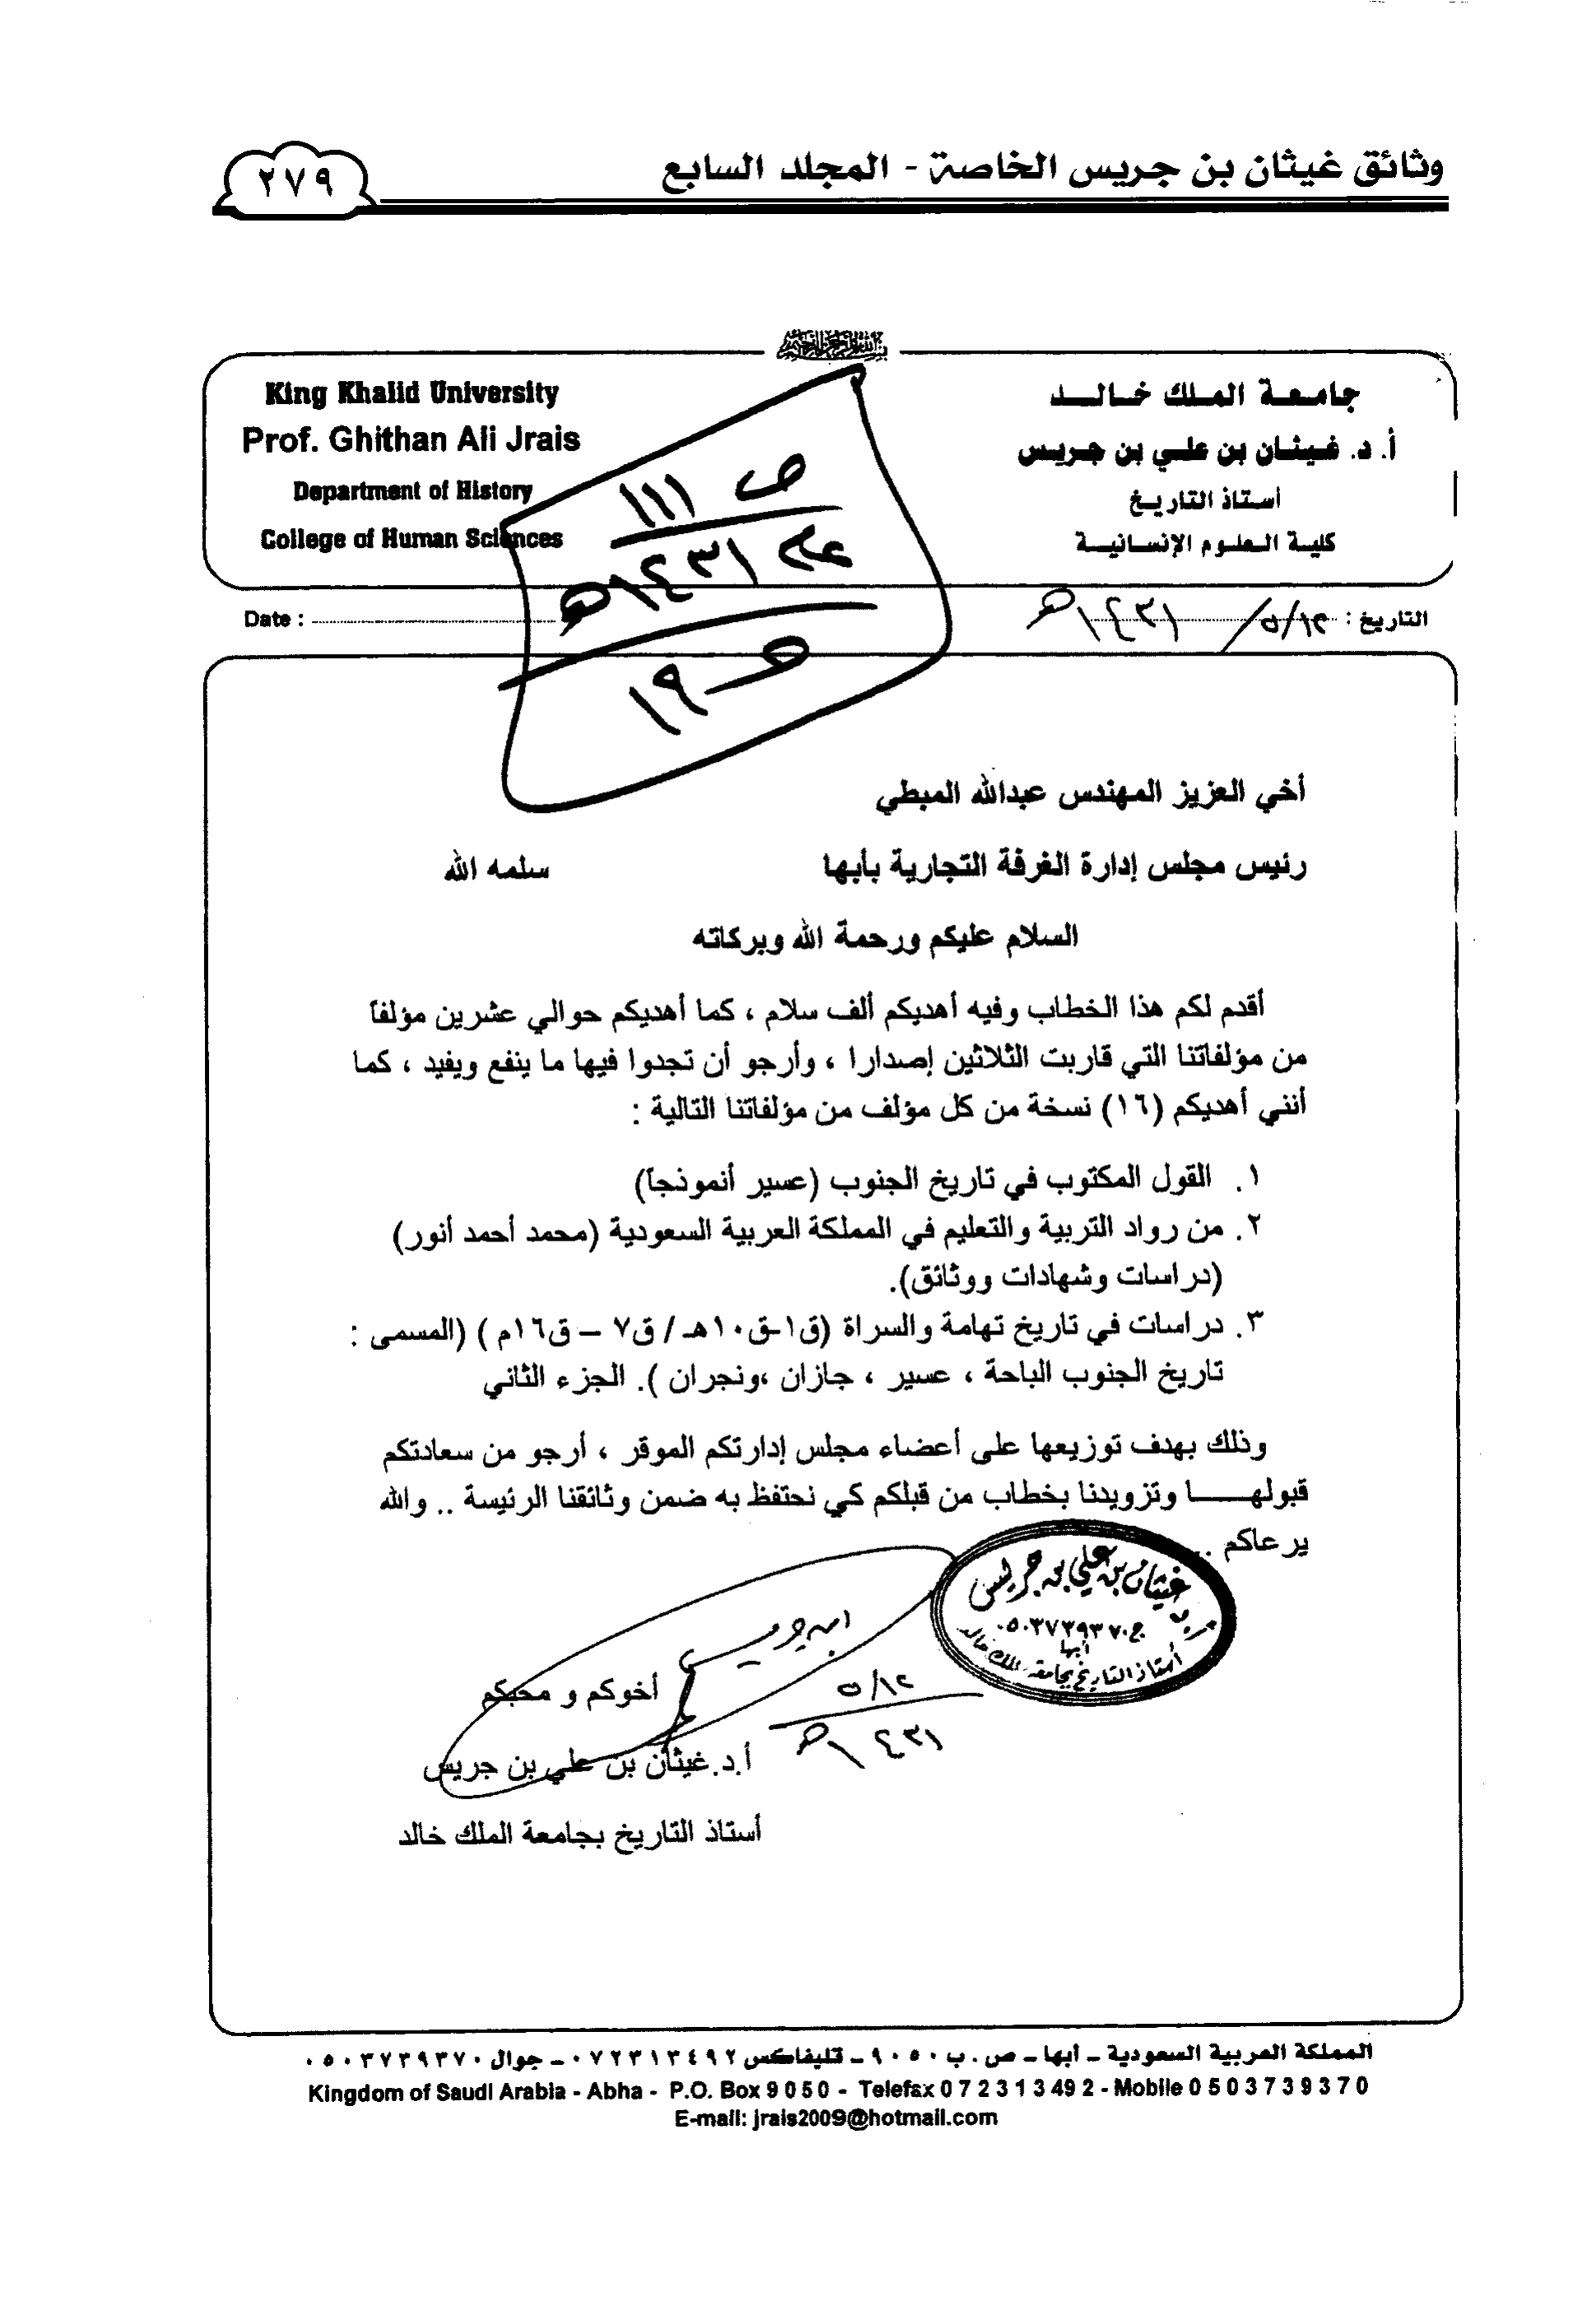 وثائق غيثان بن جريس الخاصة - المجلد السابع
٢٧٩
بسم الله الرحمن الرحيم
جامعة الملك خالد
أ. د. غيثان بن علي بن جريس
أستاذ التاريخ
كلية العلوم الإنسانية
King Khalid University
Prof. Ghithan Ali Jrais
Department of History
College of Human Sciences
ص ١١١
عام ١٤٣١هـ
هـ ١٩
التاريخ : ٥/١٢/ ١٤٣١هـ
Date :
أخي العزيز المهندس عبدالله المبطي
رئيس مجلس إدارة الغرفة التجارية بأبها سلمه الله
السلام عليكم ورحمة الله وبركاته
أقدم لكم هذا الخطاب وفيه أهديكم ألف سلام ، كما أهديكم حوالي عشرين مؤلفاً
من مؤلفاتنا التي قاربت الثلاثين إصدارا ، وأرجو أن تجدوا فيها ما ينفع ويفيد ، كما
أنني أهديكم (١٦) نسخة من كل مؤلف من مؤلفاتنا التالية :
١. القول المكتوب في تاريخ الجنوب (عسير أنموذجاً)
٢. من رواد التربية والتعليم في المملكة العربية السعودية (محمد أحمد أنور)
(دراسات وشهادات ووثائق).
٣. دراسات في تاريخ تهامة والسراة (ق١-ق١٠هـ / ق٧ – ق١٦م ) (المسمى :
تاريخ الجنوب الباحة ، عسير ، جازان ،ونجران ). الجزء الثاني
وذلك بهدف توزيعها على أعضاء مجلس إدارتكم الموقر ، أرجو من سعادتكم
قبولهـــــا وتزويدنا بخطاب من قبلكم كي نحتفظ به ضمن وثائقنا الرئيسة .. والله
يرعاكم ..
غيثان بن علي بن جريس
ج ٠٥٠٣٧٣٩٣٧٠
أبها
أستاذ التاريخ بجامعة الملك خالد
ابن جريس
٥/١٢
١٤٣١هـ
أخوكم و محبكم
أ.د.غيثان بن علي بن جريس
أستاذ التاريخ بجامعة الملك خالد
المملكة العربية السعودية ـ أبها ـ ص . ب ٩٠٥٠ ـ تليفاكس ٠٧٢٣١٣٤٩٢ ـ جوال ٠٥٠٣٧٣٩٣٧٠
Kingdom of Saudi Arabia - Abha - P.O. Box 9 0 5 0 - Telefax 0 7 2 3 1 3 49 2 - Mobile 0 5 0 3 7 3 9 3 7 0
E-mail: jrais2009@hotmail.com